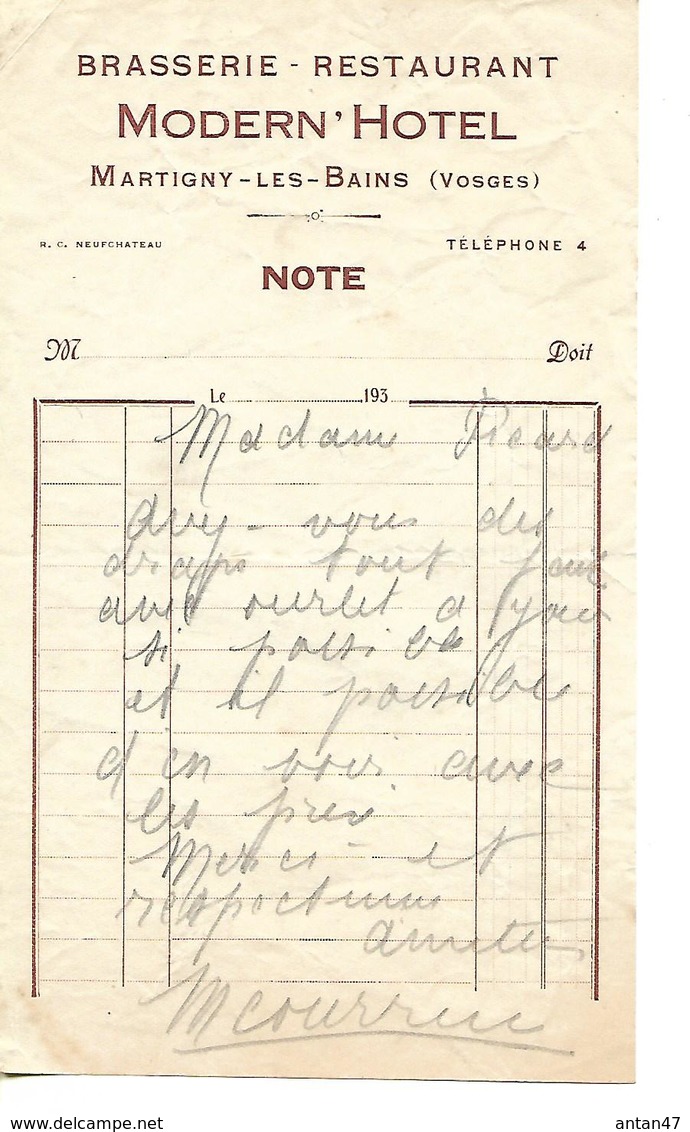 BRASSERIE - RESTAURANT
MODERN' HOTEL
MARTIGNY-LES-BAINS (VOSGES)
R. C. NEUFCHATEAU
TÉLÉPHONE 4
NOTE
M Doit
Le 193
Madame Picard
avez-vous des
draps tout
avec ourlet a jour
si possible
et il possible
d'en voir avec
les prix
Merci et
respectueuse
www.delcampe.net
antan47